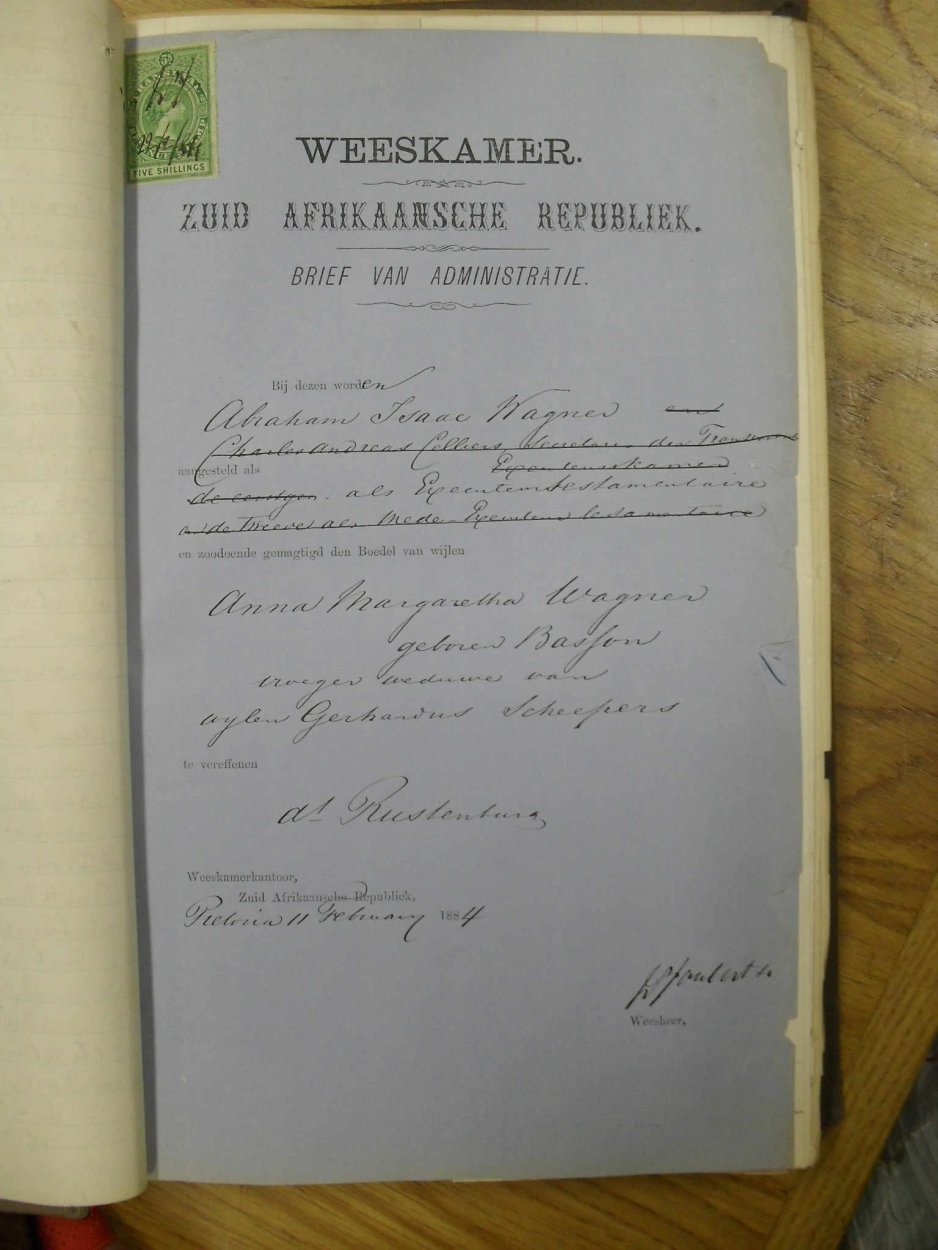 FIVE SHILLINGS
WEESKAMER.
ZUID AFRIKAANSCHE REPUBLIEK.
BRIEF VAN ADMINISTRATIE.
Bij dezen worden
Abraham Isaac Wagner en
Charles Andreas Celliers, Secretaris der Transvaal
aangesteld als Executeurskamer
de eerstgen. als Executeur testamentaire
en de tweede als Mede-Executeur testamentaire
en zoodoende gemagtigd den Boedel van wijlen
Anna Margaretha Wagner
geboren Basson
vroeger weduwe van
wylen Gerhardus Scheepers
te vereffenen
dt Rustenburg
Weeskamerkantoor,
Zuid Afrikaansche Republiek,
Pretoria 11 February 1884
Joubert
Weesheer.